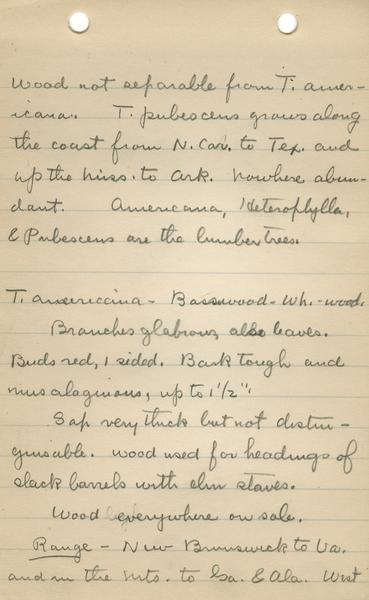 Wood not separable from T. amer-
icana. T. pubescens grows along
the coast from N. Car. to Tex. and
up the Miss. to Ark. Nowhere abun-
dant. Americana, Heterophylla,
& Pubescens are the lumber trees.
T. americana - Basswood - Wh.-wood.
Branches glabrous, also leaves.
Buds red, 1 sided. Bark tough and
musalaginous, up to 1 1/2".
Sap very thick but not distin-
guisable. Wood used for headings of
slack barrels with elm staves.
Wood everywhere on sale.
Range - New Brunswick to Va.
and in the Mts. to Ga. & Ala. West